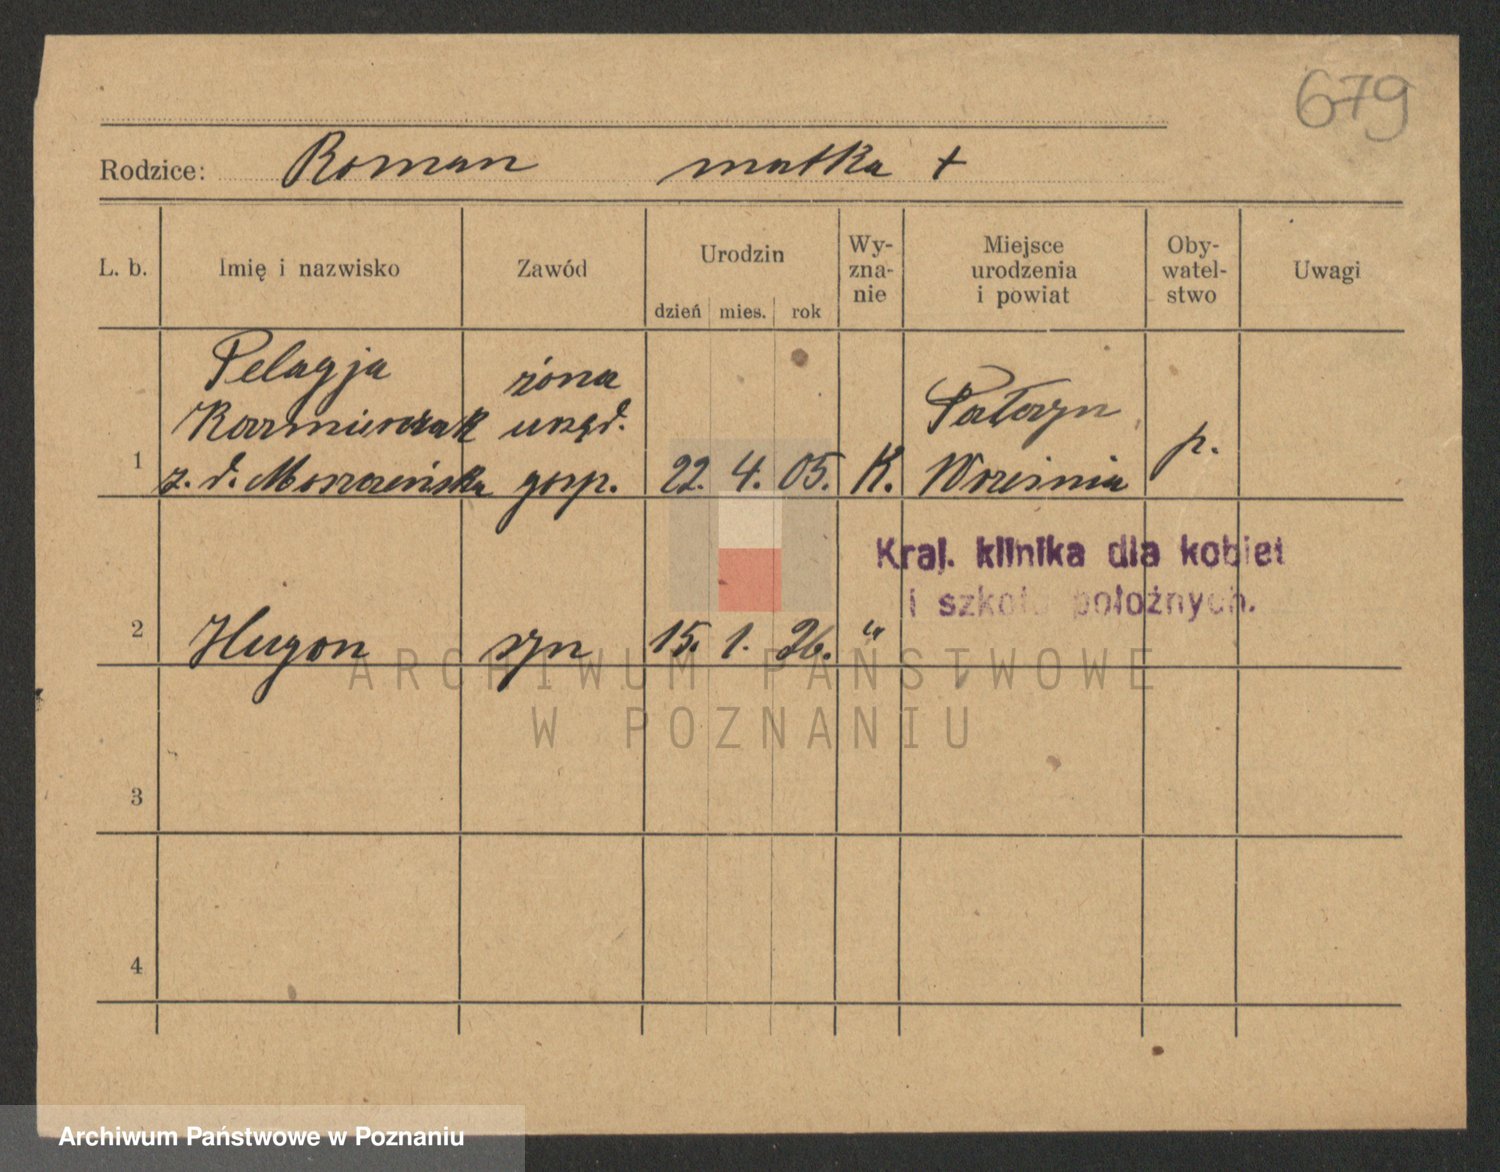 679
Rodzice: Roman matka +
L. b. Imię i nazwisko Zawód Urodzin Wy-zna-nie Miejsce urodzenia i powiat Oby-watel-stwo Uwagi
dzień mies. rok
Pelagja żona
Kazmierczak urzęd. Pałczyn
1 z. d. Moszczeńska gosp. 22. 4. 05. K. Września p.
Kraj. klinika dla kobiet
i szkoła położnych.
2 Hugon syn 15. 1. 26. "
ARCHIWUM PAŃSTWOWE
W POZNANIU
3
4
Archiwum Państwowe w Poznaniu